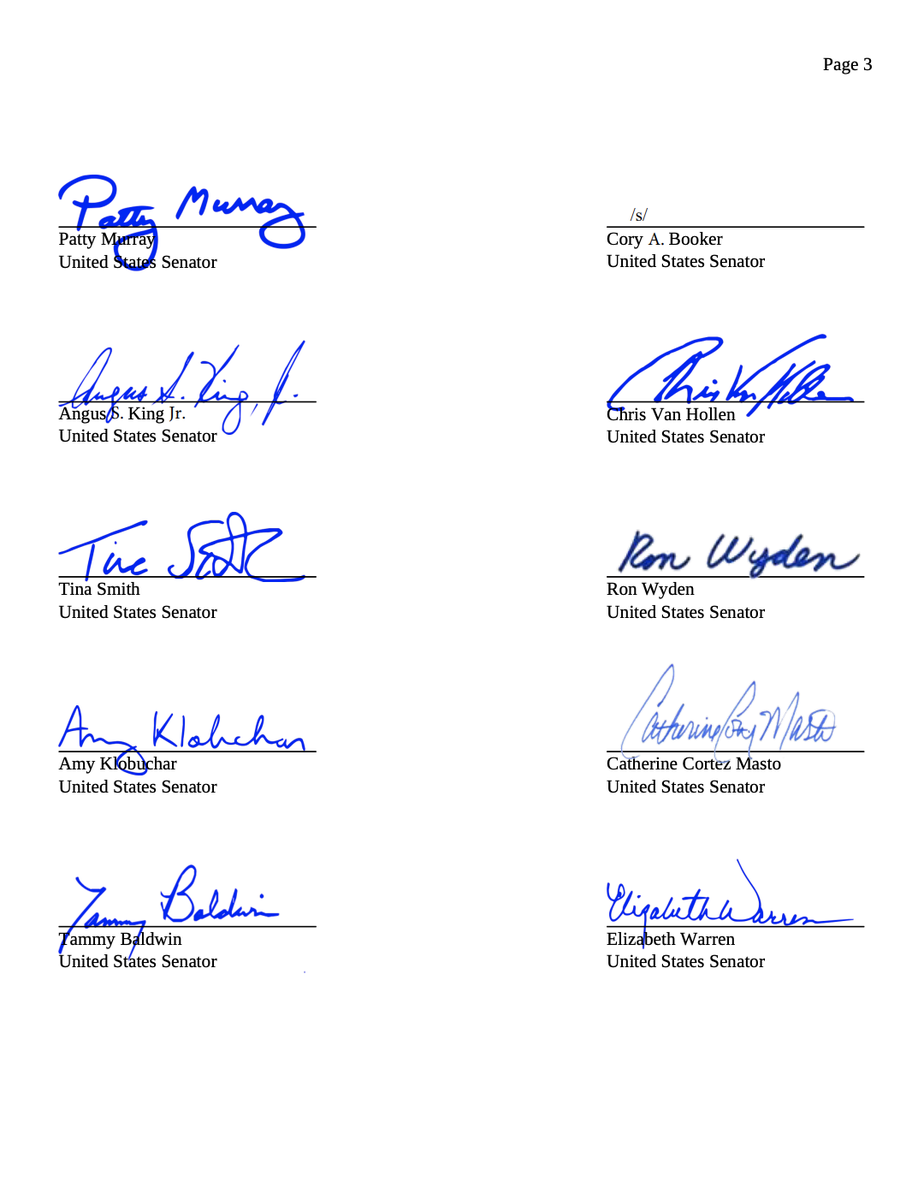 Page 3
Patty Murray
Patty Murray
United States Senator
/s/
Cory A. Booker
United States Senator
Angus S. King, Jr.
Angus S. King Jr.
United States Senator
Chris Van Hollen
Chris Van Hollen
United States Senator
Tina Smith
Tina Smith
United States Senator
Ron Wyden
Ron Wyden
United States Senator
Amy Klobuchar
Amy Klobuchar
United States Senator
Catherine Cortez Masto
Catherine Cortez Masto
United States Senator
Tammy Baldwin
Tammy Baldwin
United States Senator
Elizabeth Warren
Elizabeth Warren
United States Senator